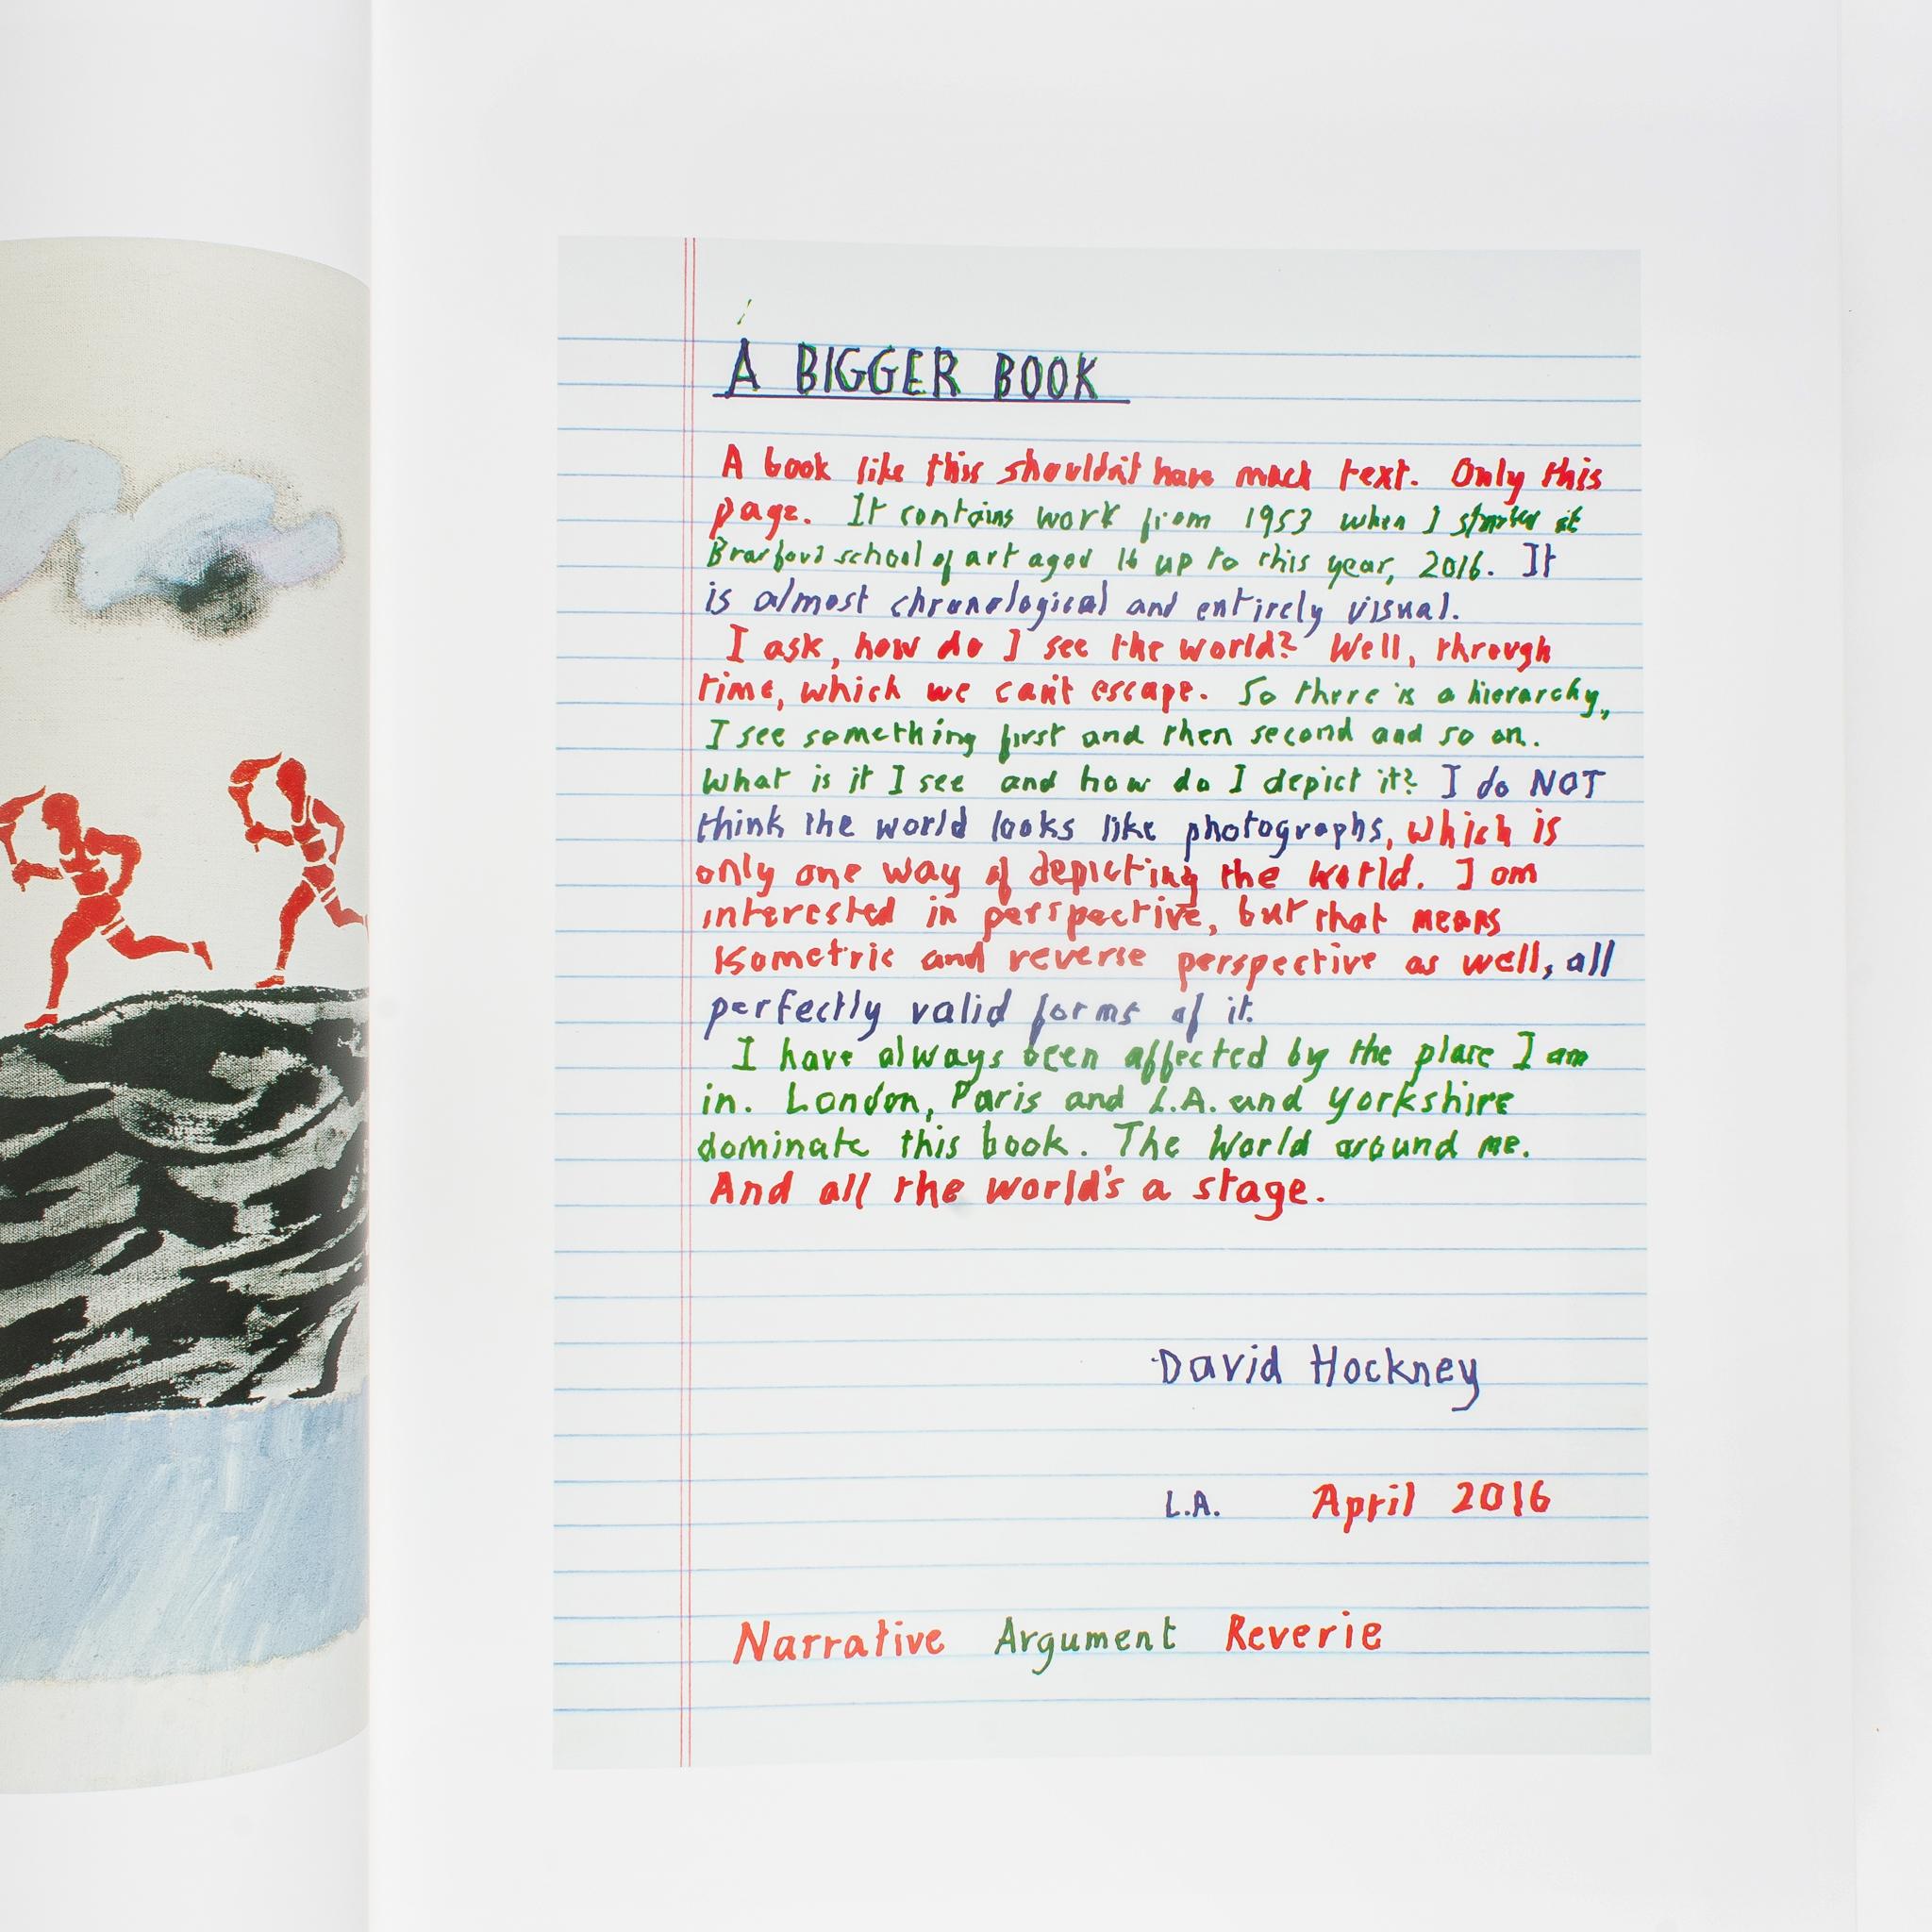 A BIGGER BOOK
A book like this shouldn't have much text. Only this
page. It contains work from 1953 when I started at
Bradford school of art aged 16 up to this year, 2016. It
is almost chronological and entirely visual.
I ask, how do I see the world? Well, through
time, which we can't escape. So there is a hierarchy,
I see something first and then second and so on.
What is it I see and how do I depict it? I do NOT
think the world looks like photographs, which is
only one way of depicting the world. I am
interested in perspective, but that means
isometric and reverse perspective as well, all
perfectly valid forms of it.
I have always been affected by the place I am
in. London, Paris and L.A. and Yorkshire
dominate this book. The World around me.
And all the world's a stage.
David Hockney
L.A. April 2016
Narrative Argument Reverie